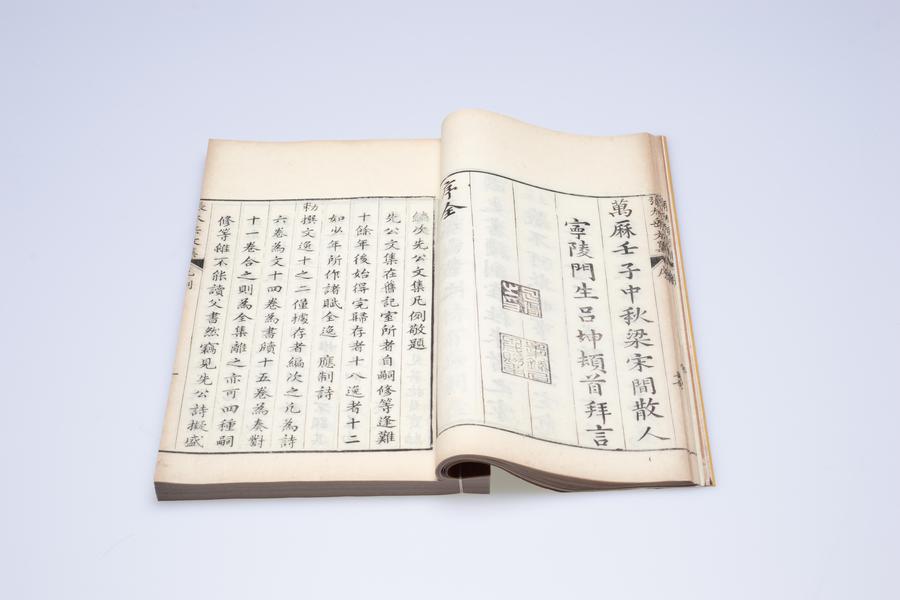 萬厤壬子中秋梁宋間散人
寧陵門生吕坤頓首拜言
序全
編次先公文集凡例敬題
先公文集在舊記室所者自嗣修等逢難
十餘年後始得完歸存者十八逸者十二
如少年所作諸賦全逸應制詩
勅撰文逸十之二僅據存者編次之凡為詩
六卷為文十四卷為書牘十五卷為奏對
十一卷合之則為全集離之亦可四種嗣
修等雖不能讀父書然竊見先公詩擬盛